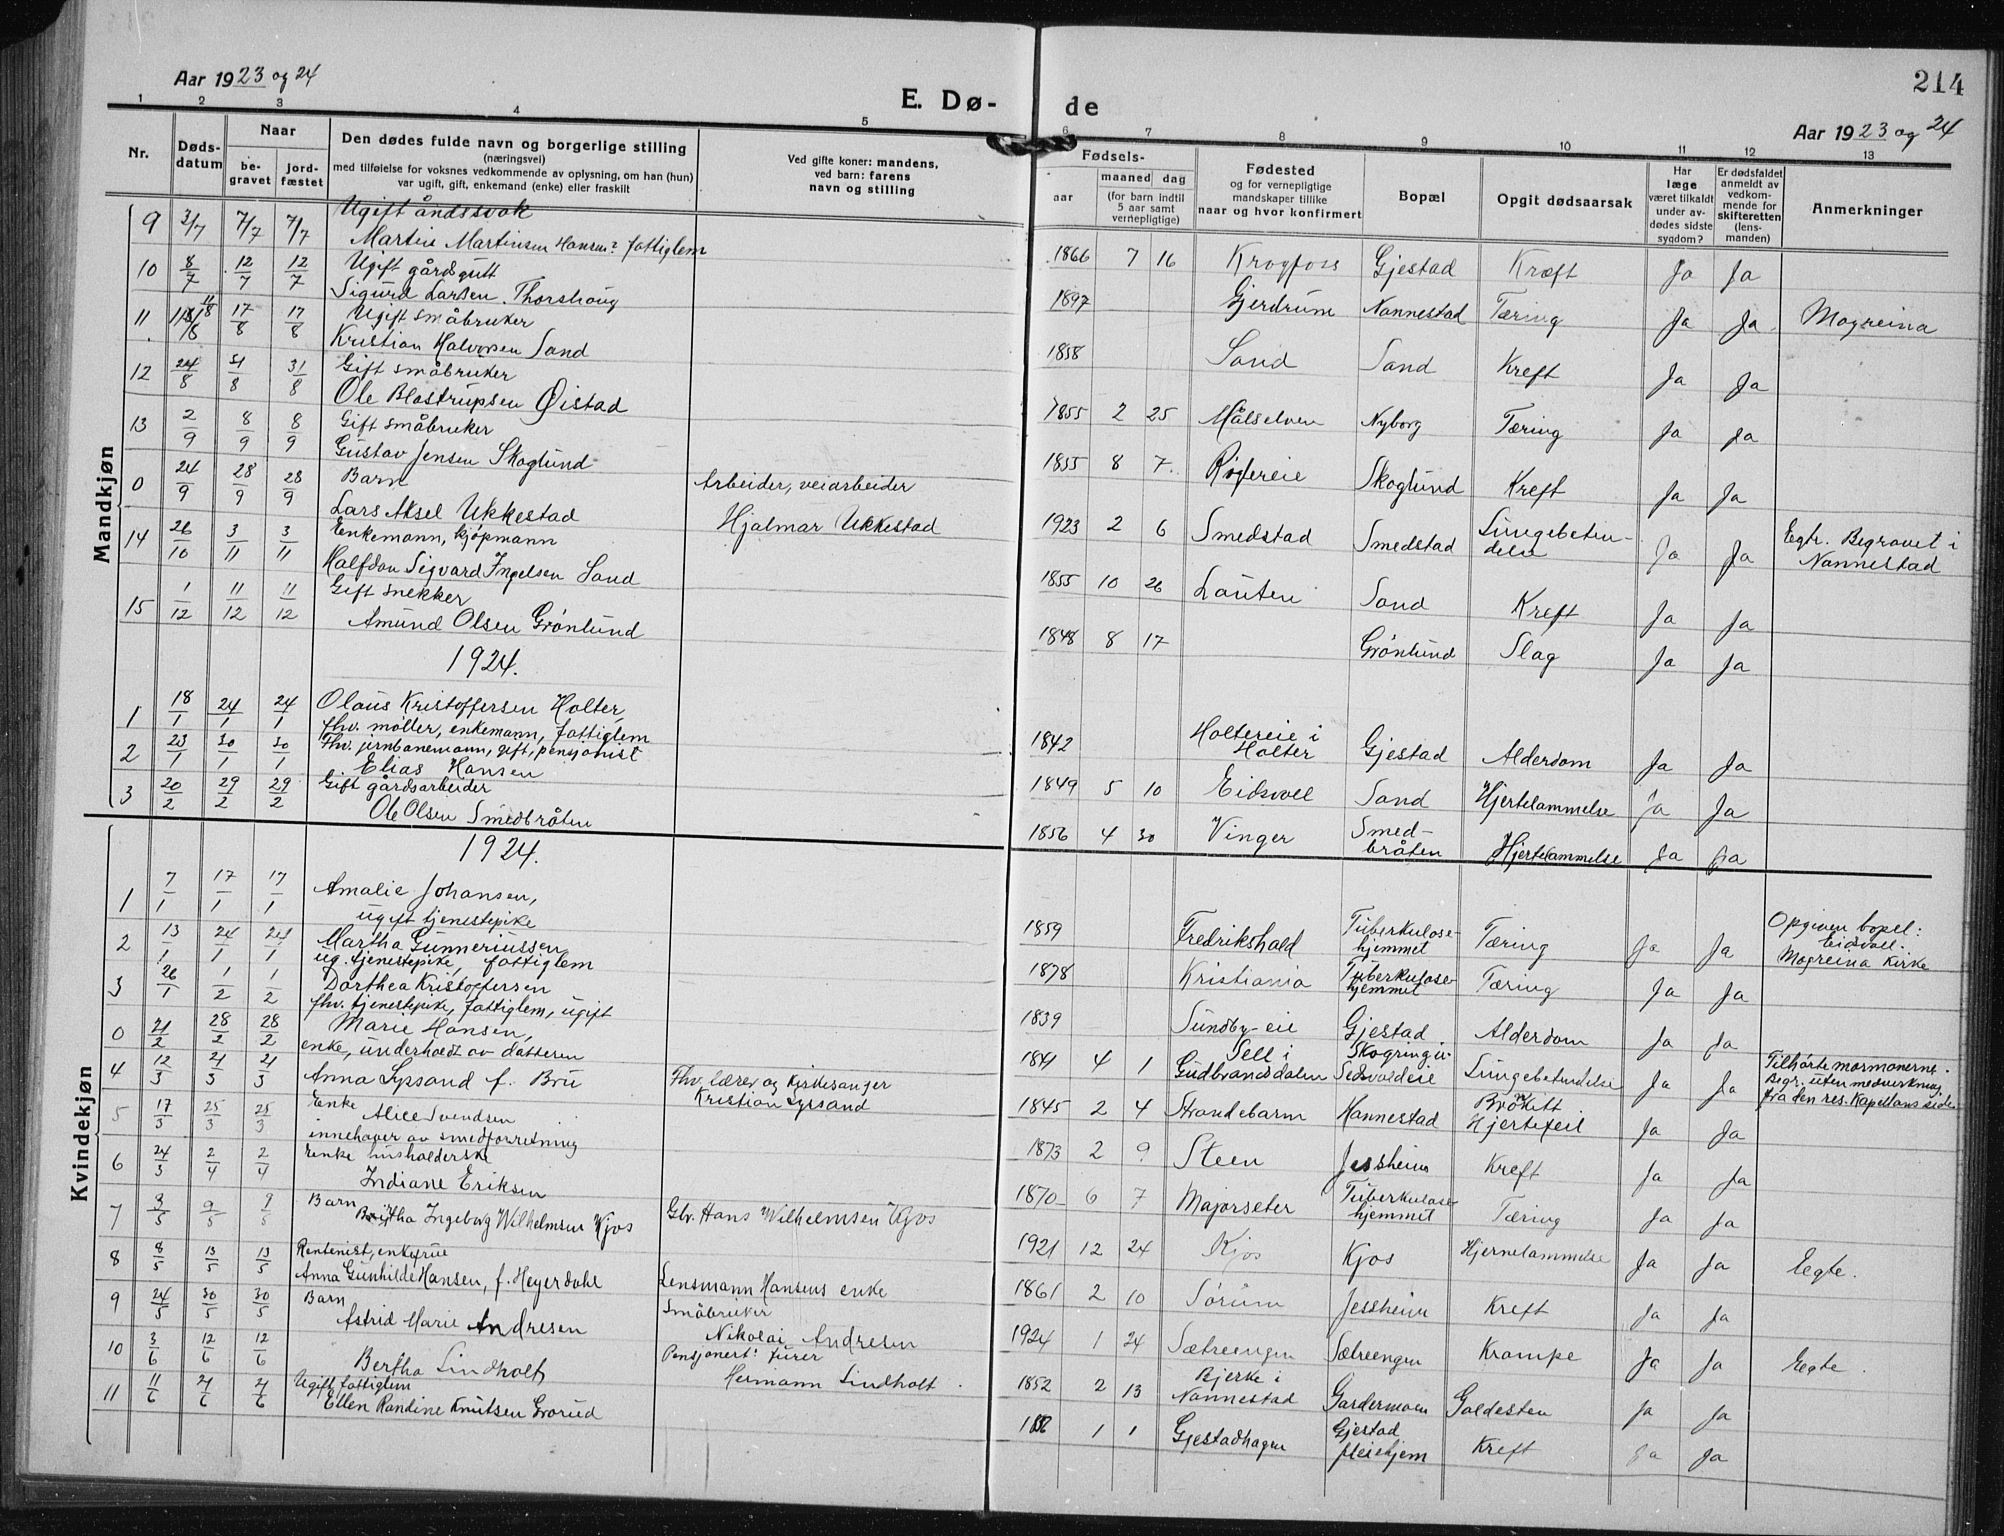 214
Aar 1923 og 24
E. Dø-
de
Aar 1923 og 24
1 2 3 4 5 6 7 8 9 10 11 12 13
Nr.
Døds-
datum
Naar
be-
gravet
jord-
fæstet
Den dødes fulde navn og borgerlige stilling
(næringsvei)
med tilføielse for voksnes vedkommende av oplysning, om han (hun)
var ugift, gift, enkemand (enke) eller fraskilt
Ved gifte koner: mandens,
ved barn: farens
navn og stilling
Fødsels-
aar
maaned dag
(for barn indtil
5 aar samt
vernepligtige)
Fødested
og for vernepligtige
mandskaper tillike
naar og hvor konfirmert
Bopæl
Opgit dødsaarsak
Har
læge
været tilkaldt
under av-
dødes sidste
sygdom?
Er dødsfaldet
anmeldt av
vedkom-
mende for
skifteretten
(lens-
manden)
Anmerkninger
Mandkjøn
9 3/7 7/7 7/7 Ugift åndssvak
Martin Martinsen Hansen? fattiglem 1866 7 16 Krogfoss Gjestad Kræft Ja Ja
10 8/7 12/7 12/7 Ugift gårdsgutt
Sigurd Larsen Thorshaug 1897 Gjerdrum Nannestad Tæring Ja Ja Mogreina
11 11/8 17/8 17/8 Ugift småbruker
Kristian Halvorsen Sand 1858 Sand Sand Kreft Ja Ja
12 24/8 31/8 31/8 Gift småbruker
Ole Blostrupsen Øistad 1855 2 25 Målselven Nyborg Tæring Ja Ja
13 2/9 8/9 8/9 Gift småbruker
Gustav Jensen Skoglund 1855 8 7 Skoglund Kreft Ja Ja
0 24/9 28/9 28/9 Barn Arbeider, veiarbeider
Lars Aksel Ukkestad Hjalmar Ukkestad 1923 2 6 Smedstad Smedstad Lungebeten-
delse Ja Ja Egte. Begravet i
Nannestad
14 26/10 3/11 3/11 Enkemann, kjøpmann
Halfdan Sigvard Ingelsen Sand 1855 10 26 Løuten Sand Kreft Ja Ja
15 1/12 11/12 11/12 Gift snekker
Amund Olsen Grønlund 1848 8 17 Grønlund Slag Ja Ja
1924.
1 18/1 24/1 24/1 Olaus Kristoffersen Holter,
fhv. møller, enkemann, fattiglem 1842 Holtereie i
Holter Gjestad Alderdom Ja Ja
2 23/1 30/1 30/1 Fhv. jernbanemann, gift, pensjonist
Elias Hansen 1849 5 10 Eidsvoll Sand Hjertelammelse Ja Ja
3 20/2 29/2 29/2 Gift gårdsarbeider
Ole Olsen Smedbråten 1856 4 30 Vinger Smed-
bråten Hjertelammelse Ja Ja
Kvindekjøn
1924.
1 7/1 17/1 17/1 Amalie Johansen,
ugift tjenestepike 1859 Fredrikshald Tuberkulose-
hjemmet Tæring Ja Ja Opgiven bopel:
Eidsvoll.
Mogreina Kirke
2 13/1 24/1 24/1 Martha Gunneriussen
ug. tjenestepike, fattiglem 1878 Kristiania Tuberkulose-
hjemmet Tæring Ja Ja
3 26/1 1/2 1/2 Dorthea Kristoffersen
fhv. tjenestepike, fattiglem, ugift 1839 Sundby-eie Gjestad Alderdom Ja Ja
0 21/2 28/2 28/2 Marie Hansen,
enke, underholdt av datteren 1841 4 1 Sell i
Gudbrandsdalen Lungebetendelse Ja Ja Tilhørte mormonerne.
Begr. uten medverkning
fra den res. Kapellans side
4 12/3 21/3 21/3 Anna Lyssand f. Bru Fhv. lærer og kirkesanger
Kristian Lyssand 1845 2 4 Strandebarm Hannestad
Hjertefeil Ja Ja
5 17/3 25/3 25/3 Enke Alice Svendsen
innehaver av smedforretning 1873 2 9 Steen Jessheim Kreft Ja Ja
6 24/3 2/4 2/4 Enke husholderske
Indiane Eriksen 1870 6 7 Majorseter Tuberkulose-
hjemmet Tæring Ja Ja
7 3/5 9/5 9/5 Barn
Ingeborg Wilhelmsen Kjos Gbr. Hans Wilhelmsen Kjos 1921 12 24 Kjos Kjos Hjernelammelse Ja Ja Egte.
8 8/5 13/5 13/5 Rentenist, enkefrue
Anna Gunhilde Hansen, f. Heyerdahl Lensmann Hansens enke 1861 2 10 Sørum Jessheim Kreft Ja Ja
9 24/5 30/5 30/5 Barn Småbruker
Astrid Marie Andresen Nikolai Andresen 1924 1 24 Sætreengen Sætreengen Krampe Ja Ja Egte.
10 3/6 12/6 12/6 Bertha Lindholt Pensjonert furer
Hermann Lindholt. 1852 2 13 Bjerke i
Nannestad Gardermoen Galdesten Ja Ja
11 11/6 21/6 21/6 Ugift, fattiglem
Ellen Randine Knutsen Grorud 1 1 Gjestadhagen Gjestad
pleiehjem Kreft Ja Ja